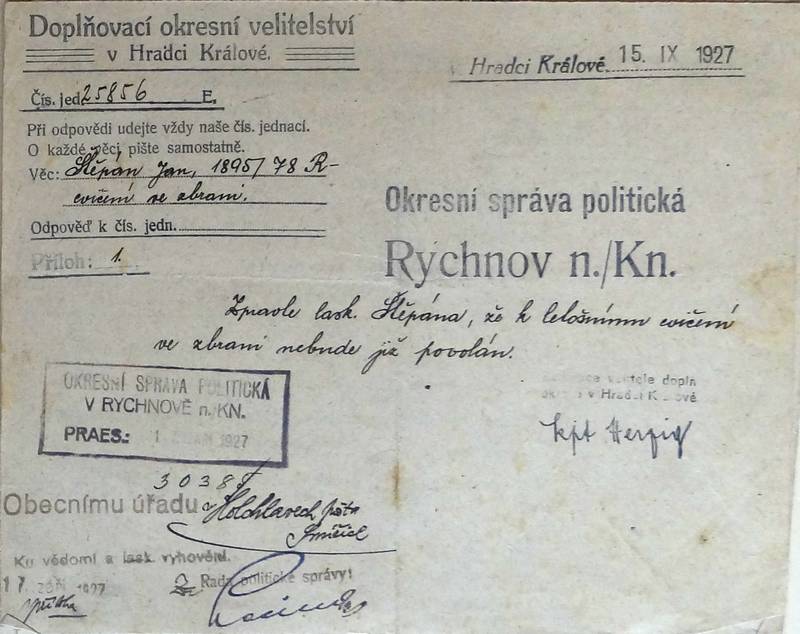 Doplňovací okresní velitelství
v Hradci Králové.
v Hradci Králové. 15. IX 1927
Čís. jed. 25856 E.
Při odpovědi udejte vždy naše čís. jednací.
O každé věci pište samostatně.
Věc: Štěpán Jan, 1895/78 R-
cvičení ve zbrani.
Odpověď k čís. jedn.
Příloh: 1.
Okresní správa politická
Rychnov n./Kn.
Zpravte lask. Štěpána, že k letošnímu cvičení
ve zbrani nebude již povolán.
OKRESNÍ SPRÁVA POLITICKÁ
V RYCHNOVĚ n. KN.
PRAES.: 1 1927
velitele doplň
v Hradci Králové
kpt Herzig
30385
Obecnímu úřadu v
pošta
Smiřice
Ku vědomí a lask vyhovění.
17 září 1927
Rada politické správy: